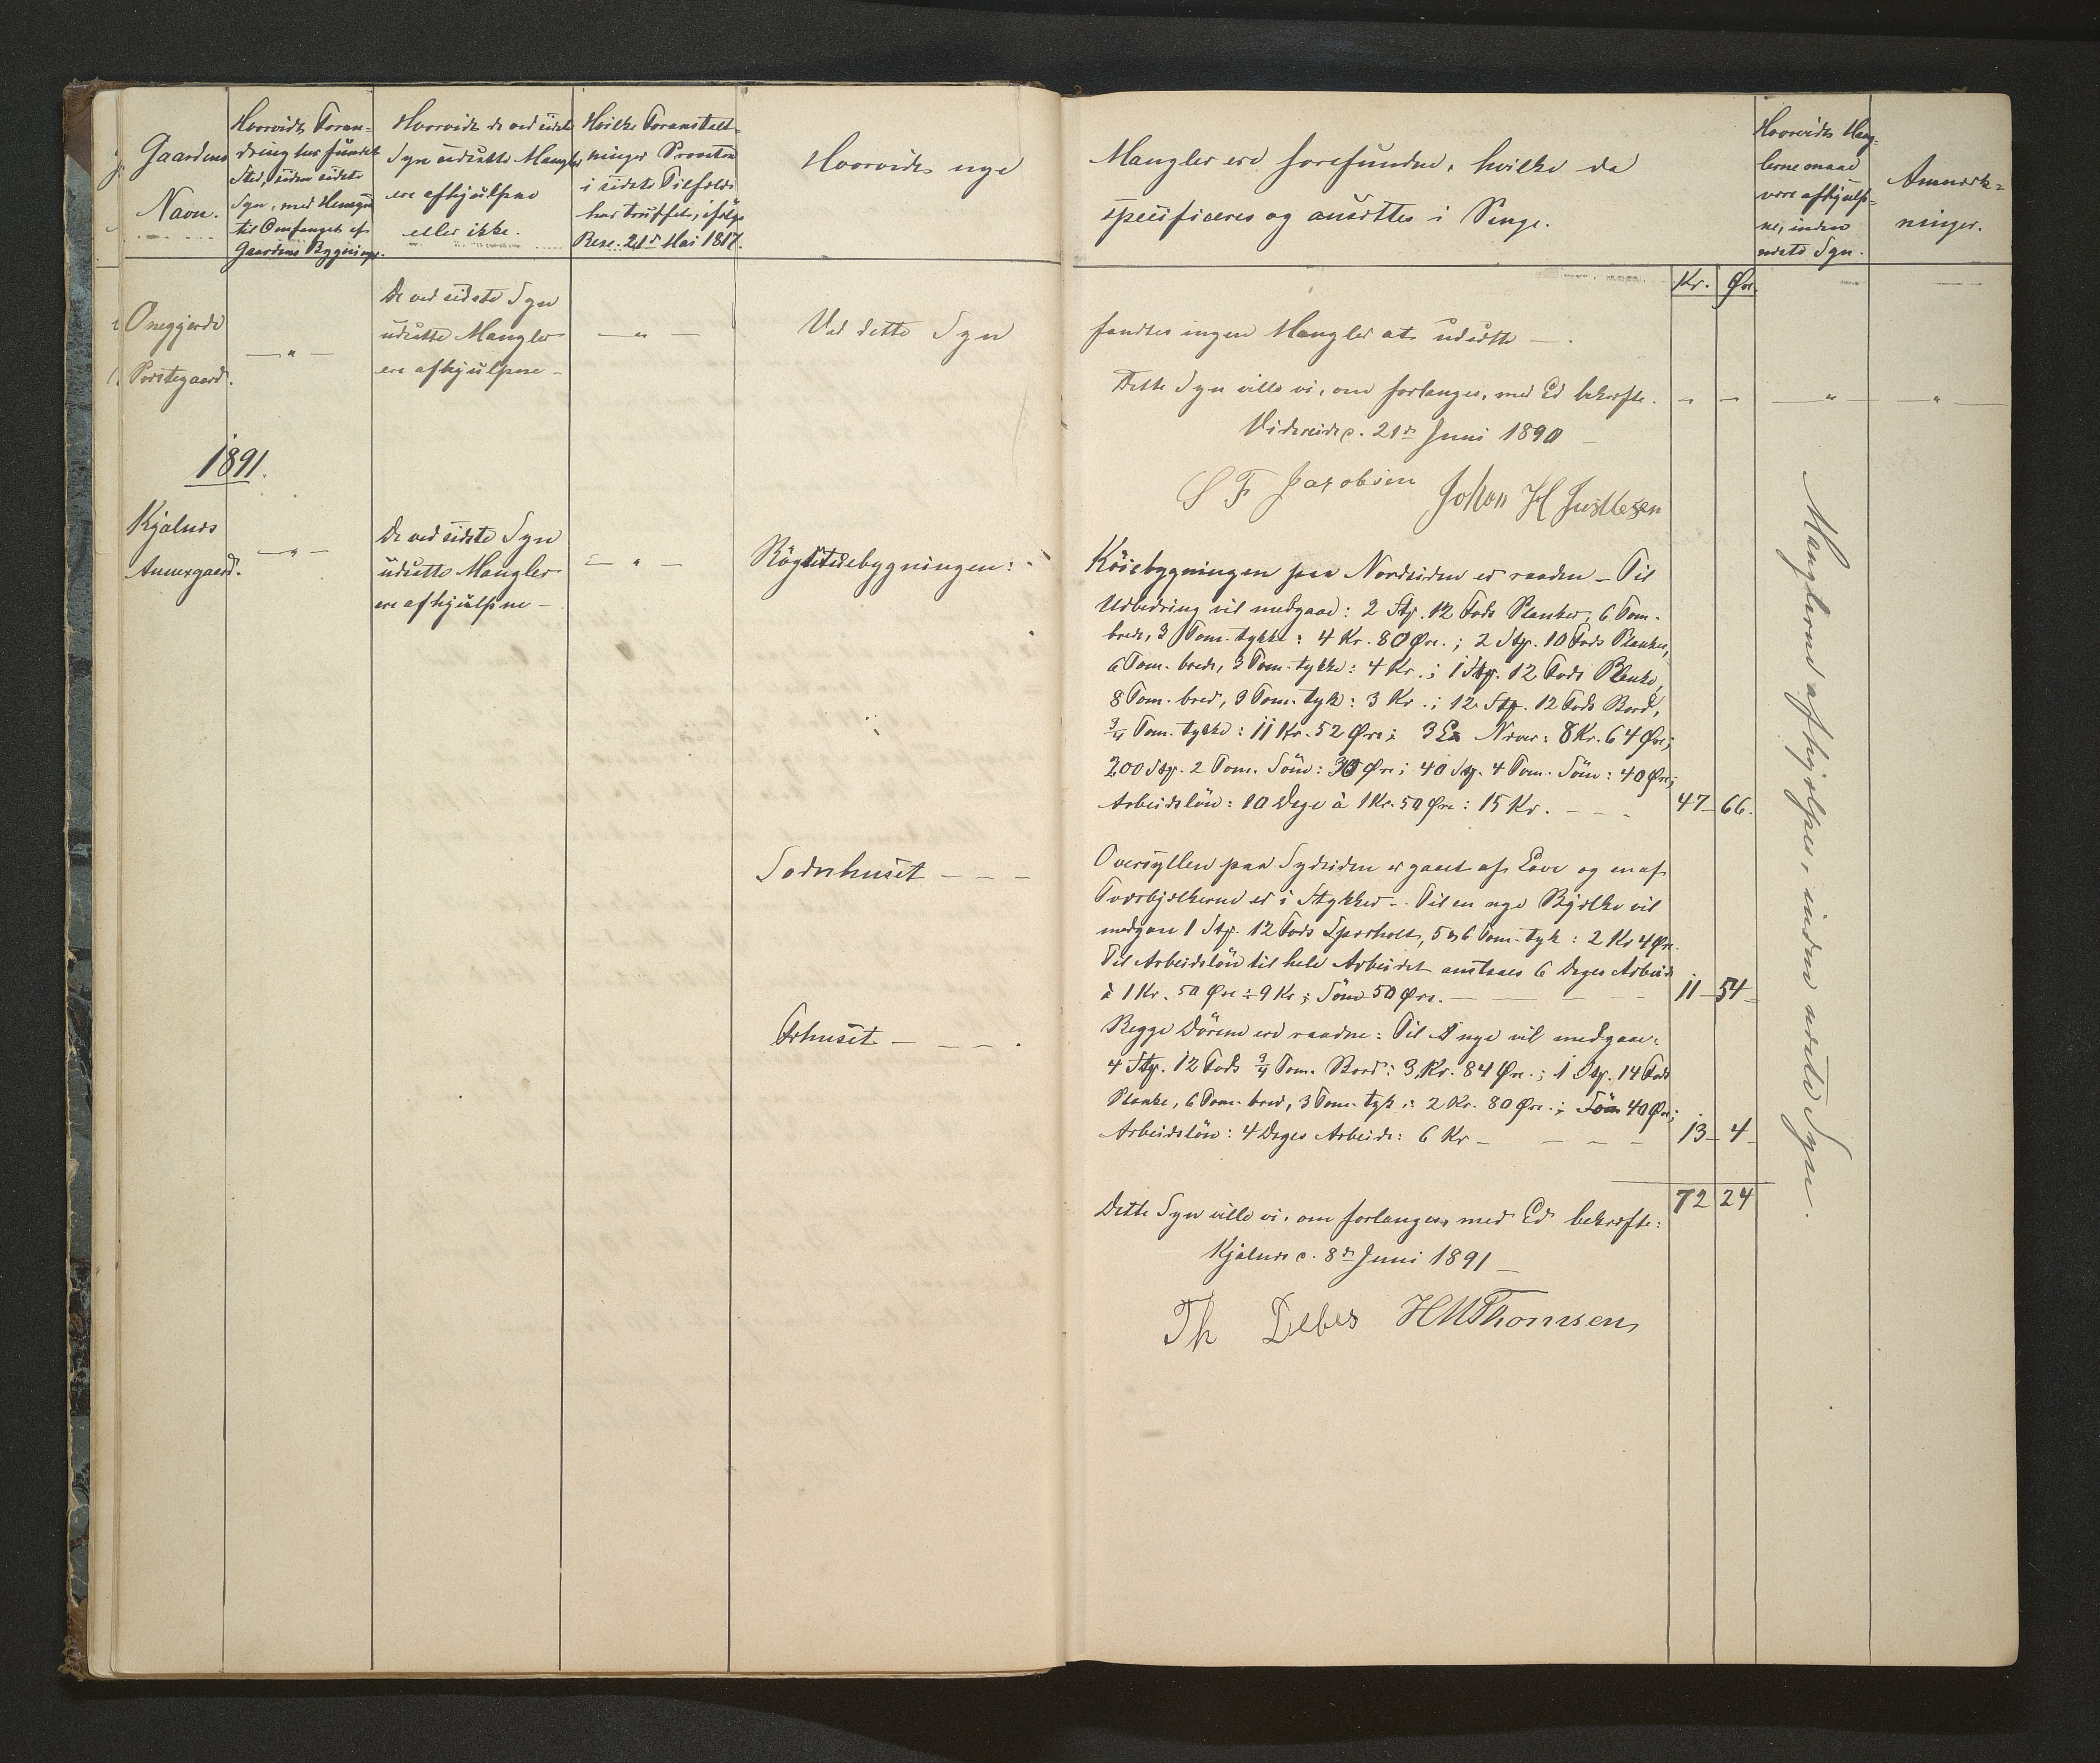 Gaardens
Navn.
Hvorvidt Foran-
dring har fundet
Sted, siden sidste
Syn, med Hensyn
til Omfanget af
Gaardens Bygninger.
Hvorvidt de ved sidste
Syn udsatte Mangler
ere afhjulpne
eller ikke.
Hvilke Foranstalt-
ninger Provsten
i sidste Tilfælde
har truffet, ifølge
Resc. 21de Mai 1817.
Hvorvidt nye
Mangler ere forefundne, hvilke da
specificeres og ansættes i Penge.
Hvorvidt Mang-
lerne maae
være afhjulp-
ne, inden
næste Syn.
Anmærk-
ninger.
Kr. Øre.
Onegjerde
Præstegaard.
— " —
De ved sidste Syn
udsatte Mangler
ere afhjulpne —
— " —
Ved dette Syn
fandtes ingen Mangler at udsætte —.
Dette Syn ville vi, om forlanges, med Ed bekræfte. — — — " — — " —
Videreide d. 21de Juni 1890 —
S F Jacobsen Johan H Justlesen
1891.
Kjalnæs
Annexgaard.
— " —
De ved sidste Syn
udsatte Mangler
ere afhjulpne —
— " —
Røgstuebygningen:
Køiebygningen paa Nordsiden er raaden — Til
Udbedring vil medgaae: 2 Stk. 12 Fods Planker, 6 Tom.
brede, 3 Tom. tykke: 4 Kr. 80 Øre.; 2 Stk. 10 Fods Planker,
6 Tom. brede, 3 Tom. tykke: 4 Kr.; 1 Stk. 12 Fods Planke,
8 Tom. bred, 3 Tom. tyk: 3 Kr.; 12 Stk. 12 Fods Bord,
3/4 Tom. tykke: 11 Kr. 52 Øre; 3 Næver: 8 Kr. 64 Øre;
200 Stk. 2 Tom. Søm: 30 Øre; 40 Stk. 4 Tom. Søm: 40 Øre;
Arbeidsløn: 10 Dage à 1 Kr. 50 Øre: 15 Kr. — — — 47 — 66.
Sodnhuset — — —
Oversyllen paa Sydsiden er gaaet af Lave og en af
Tværbjelkerne er i Stykker — Til en nye Bjælke vil
medgaae 1 Stk. 12 Fods Sparholt, 5 og 6 Tom. tyk: 2 Kr 4 Øre.
Til Arbeidsløn til hele Arbeidet anslaaes 6 Dages Arbeide
à 1 Kr. 50 Øre: 9 Kr; Søm 50 Øre. — — — 11 — 54 —
Forhuset — — —
Begge Dørene ere raadne: Til 2 nye vil medgaae:
4 Stk. 12 Fods 3/4 Tom. Bord: 3 Kr. 84 Øre.; 1 Stk. 14 Fods
Planke, 6 Tom. bred, 3 Tom. tyk: 2 Kr. 80 Øre.; Søm 40 Øre;
Arbeidsløn: 4 Dages Arbeide: 6 Kr — — — — 13 — 4 —
72 24
Dette Syn ville vi, om forlanges, med Ed bekræfte:
Kjalnæs d. 8de Juni 1891 —
Th Debes H M Thomsen
Manglerne afhjælpes, inden næste Syn.